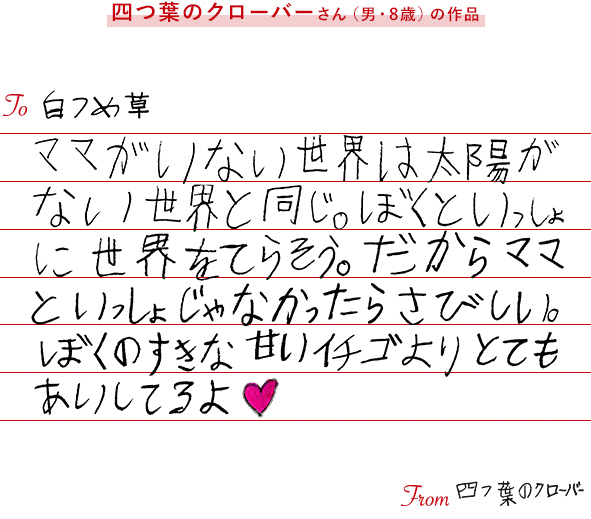 四つ葉のクローバーさん（男・8歳）の作品
To 白つめ草
ママがいない世界は太陽が
ない世界と同じ。ぼくといっしょ
に世界をてらそう。だからママ
といっしょじゃなかったらさびしい。
ぼくのすきな甘いイチゴよりとても
あいしてるよ
From 四つ葉のクローバー